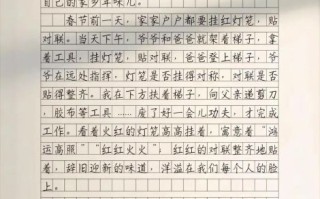 自己的家乡年味儿。
春节前一天,家家户户都要挂红灯笼,贴
对联。当天下午,爷爷和爸爸就架着梯子,拿
着工具,挂灯笼,贴对联,爸爸登上梯子,爷
爷在远处指挥,灯笼是否挂得对称,对联是否
贴得整齐。我在下方扶着梯子,向父亲递剪刀
,胶布等工具……废了好一会儿功夫,才完成
工作。看着火红的灯笼高高挂着,寓意着“鸿
运高照”“红红火火”;红红的对联整齐地贴
着,辞旧迎新的味道,洋溢在我们每个人的脸
上。